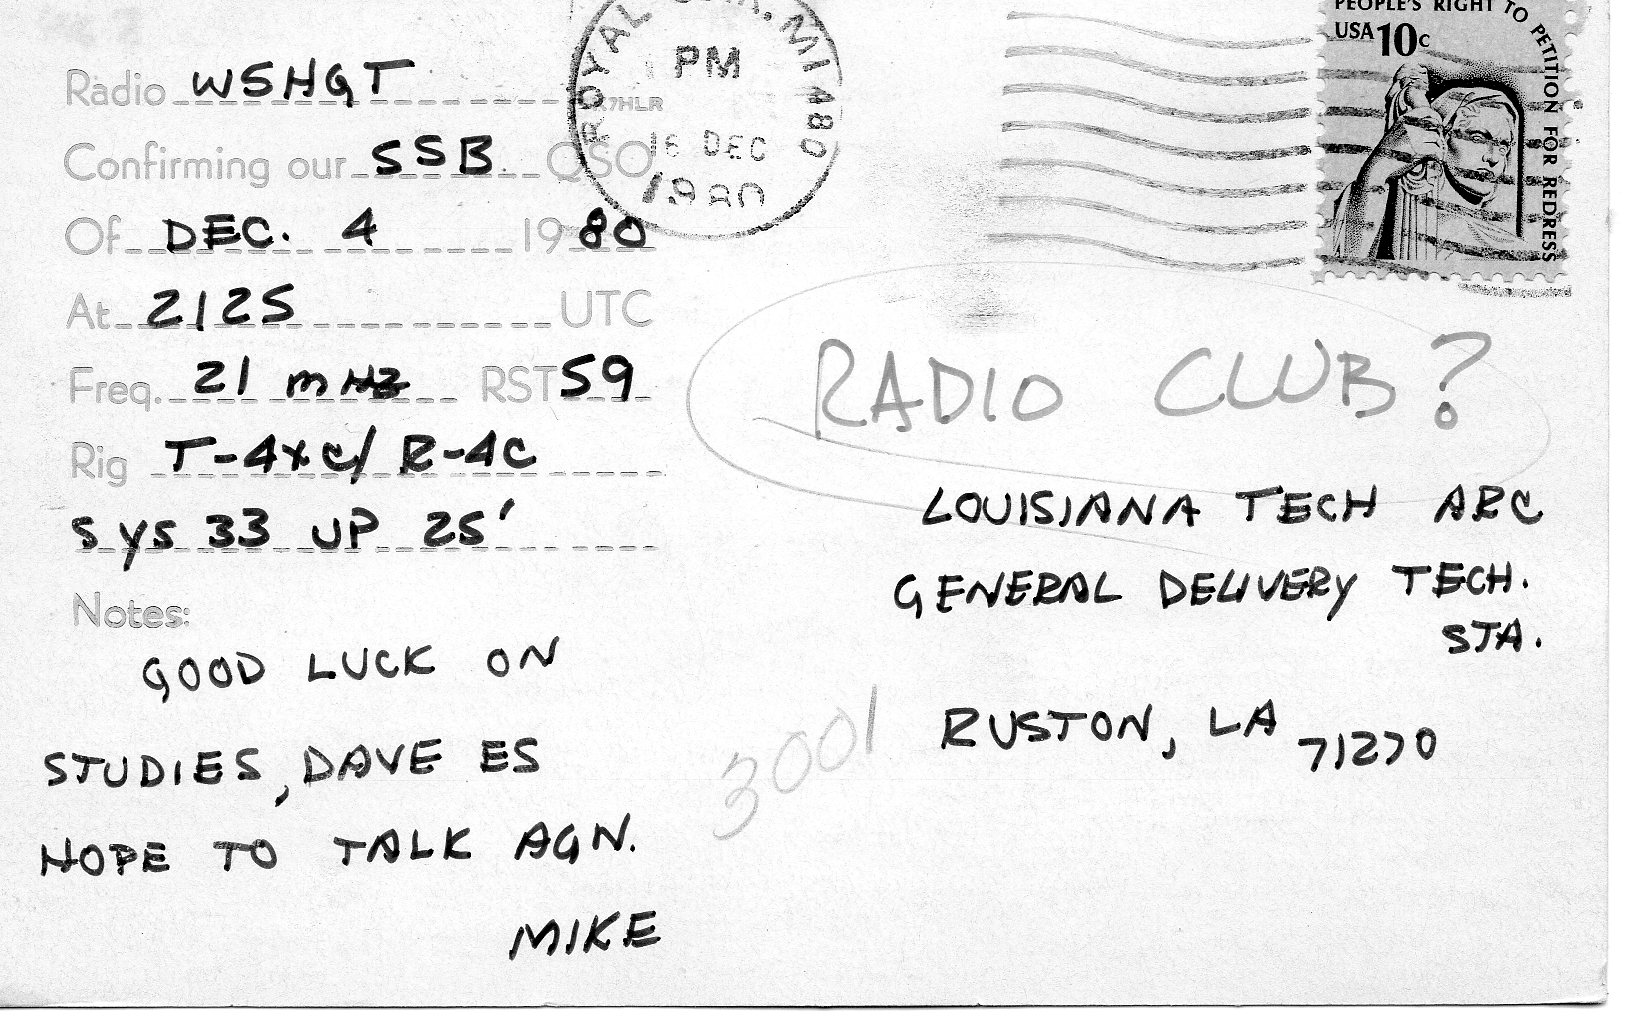 Radio W5HGT
Confirming our SSB QSO
Of DEC. 4 1980
At 2125 UTC
Freq. 21 mHZ RST 59
Rig T-4xc/ R-4C
sys 33 UP 25'
Notes:
GOOD LUCK ON
STUDIES, DAVE ES
HOPE TO TALK AGN.
MIKE
ROYAL MI 480
PM
16 DEC
1980
PEOPLE'S RIGHT TO PETITION FOR REDRESS
USA 10c
RADIO CLUB?
LOUISIANA TECH ARC
GENERAL DELIVERY TECH.
STA.
RUSTON, LA 71270
3001